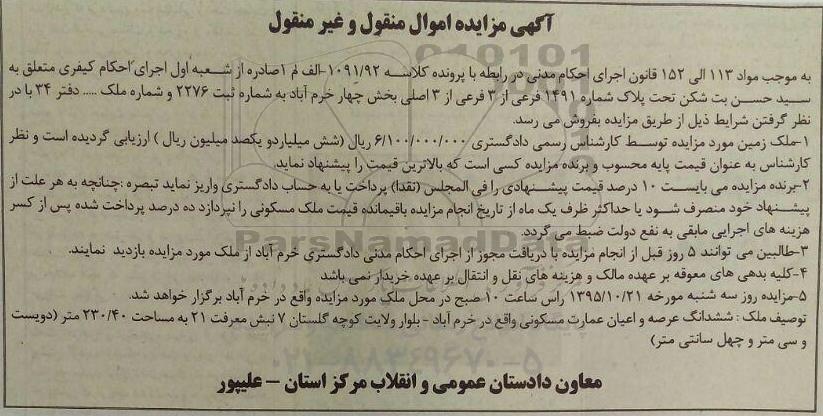 آگهی مزایده اموال منقول و غیر منقول
به موجب مواد ۱۱۳ الی ۱۵۲ قانون اجرای احکام مدنی در رابطه با پرونده کلاسه ۱۰۹۱/۹۲-الف لم ۱صادره از شعبه اول اجرای احکام کیفری متعلق به
سید حسن بت شکن تحت پلاک شماره ۱۴۹۱ فرعی از ۳ فرعی از ۳ اصلی بخش چهار خرم آباد به شماره ثبت ۲۲۷۶ و شماره ملک ..... دفتر ۳۴ با در
نظر گرفتن شرایط ذیل از طریق مزایده بفروش می رسد.
۱-ملک زمین مورد مزایده توسط کارشناس رسمی دادگستری ۶/۱۰۰/۰۰۰/۰۰۰ ریال (شش میلیاردو یکصد میلیون ریال ) ارزیابی گردیده است و نظر
کارشناس به عنوان قیمت پایه محسوب و برنده مزایده کسی است که بالاترین قیمت را پیشنهاد نماید.
۲-برنده مزایده می بایست ۱۰ درصد قیمت پیشنهادی را فی المجلس (نقدا) پرداخت یا به حساب دادگستری واریز نماید تبصره :چنانچه به هر علت از
پیشنهاد خود منصرف شود یا حداکثر ظرف یک ماه از تاریخ انجام مزایده باقیمانده قیمت ملک مسکونی را نپردازد ده درصد پرداخت شده پس از کسر
هزینه های اجرایی مابقی به نفع دولت ضبط می گردد.
۳-طالبین می توانند ۵ روز قبل از انجام مزایده با دریافت مجوز از اجرای احکام مدنی دادگستری خرم آباد از ملک مورد مزایده بازدید نمایند.
۴-کلیه بدهی های معوقه بر عهده مالک و هزینه های نقل و انتقال بر عهده خریدار نمی باشد
۵-مزایده روز سه شنبه مورخه ۱۳۹۵/۱۰/۲۱ راس ساعت ۱۰ صبح در محل ملک مورد مزایده واقع در خرم آباد برگزار خواهد شد.
توصیف ملک : ششدانگ عرصه و اعیان عمارت مسکونی واقع در خرم آباد - بلوار ولایت کوچه گلستان ۷ نبش معرفت ۲۱ به مساحت ۲۳۰/۴۰ متر (دویست
و سی متر و چهل سانتی متر)
معاون دادستان عمومی و انقلاب مرکز استان - علیپور
ParsNamadData
۰۲۱-۸۸۳۴۹۶۷۰-۵